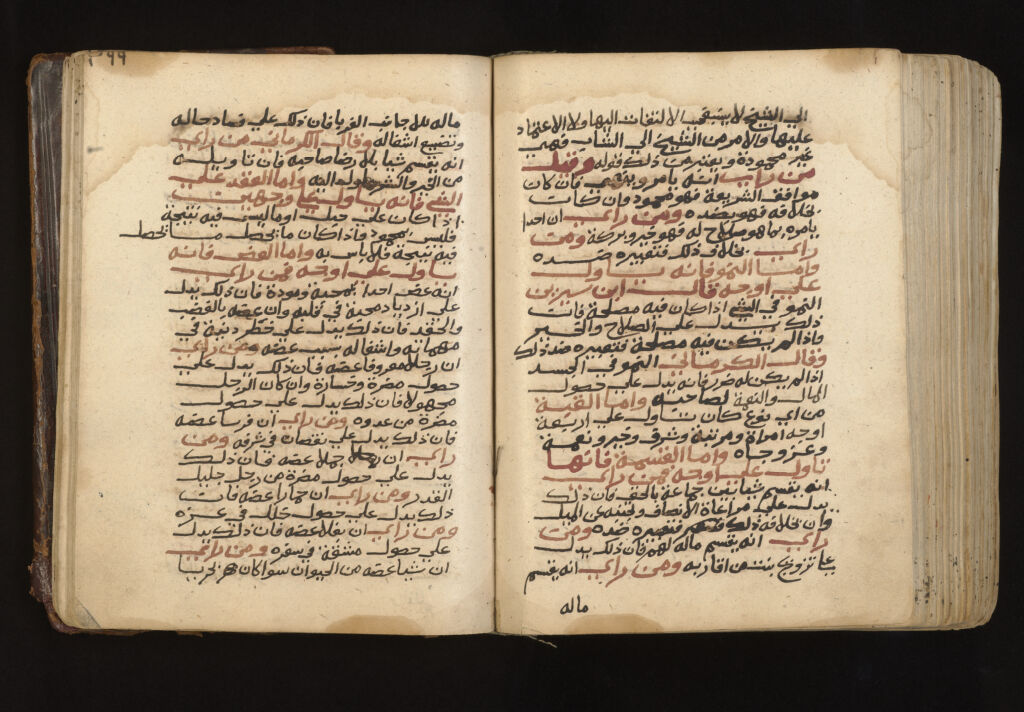 الي الشيخ لا يستحب الالتفات اليها ولا الاعتماد
عليها والامر من الشيخ الي الشاب فهي
غير محمودة ويعتبر من ذلك قوله وقيل
من راي انه يامر وينهي فان كان
موافق الشريعة فهو محمود وان كان
بخلافه فهو بضده ومن راي ان احدا
يامره بما هو صلاح له فهو خير وبركة ومن
راي بخلاف ذلك فتعبيره ضده
واما النمو فانه ياول
علي اوجه قال ابن سيرين
النمو في الشي اذا كان فيه مصلحة فان
ذلك يدل علي الصلاح والخير
واذا لم يكن فيه مصلحة فتعبيره ضد ذلك
وقال الكرماني النمو في الجسد
اذا لم يكن له ضرر فانه يدل علي حصول
المال والنعمة لصاحبه واما القبة
من اي نوع كان تاول علي اربعة
اوجه امراة ومرتبة وشرف وخير ونعمة
وعز وجاه واما القسمة فانها
تاول علي اوجه فمن راي
انه يقسم شيا بين جماعة بالحق فان ذلك
يدل علي مراعاة الانصاف وتجنبه عن الميل
وان بخلافه ذلك فتعبيره ضده ومن
راي انه يقسم ماله لهم فان ذلك يدل
علي تزويج بنته من اقاربه ومن راي انه يقسم
ماله
٣٩٩
ماله للاجانب الغربا فان ذلك علي فساد حاله
وتضييع اشغاله وقال الكرماني من راي
انه يقسم شيا بلا رضا صاحبه فان تاويله
من الخير والشر يؤول اليه واما العقد علي
الشي فانه ياول علي وجهين
اذا كان علي حبل او ما ليس فيه نتيجة
فليس بمحمود فاذا كان ما يحصل
فيه نتيجة فلا باس به واما العض فانه
ياول علي اوجه فمن راي
انه عض احدا بمحبة ومودة فان ذلك يدل
علي ازدياد محبة في قلبه وان عضه بالغضب
والحقد فان ذلك يدل علي خطر دنيه في
مهماته واشغاله بسبب عضه ومن راي
ان رجلا معروفا عضه فان ذلك يدل علي
حصول مضرة وخسارة وان كان الرجل
مجهولا فان ذلك يدل علي حصول
مضرة من عدوه ومن راي ان فرسا عضه
فان ذلك يدل علي نقصان في شرفه ومن
راي ان جملا عضه فان ذلك
يدل علي حصول مضرة من رجل جليل
القدر ومن راي ان حمارا عضه فان
ذلك يدل علي حصول خلل في عزه
ومن راي ان بغلا عضه فان ذلك يدل
علي حصول مشقة في سفره ومن راي
ان شيا عضه من الحيوان سوا كان